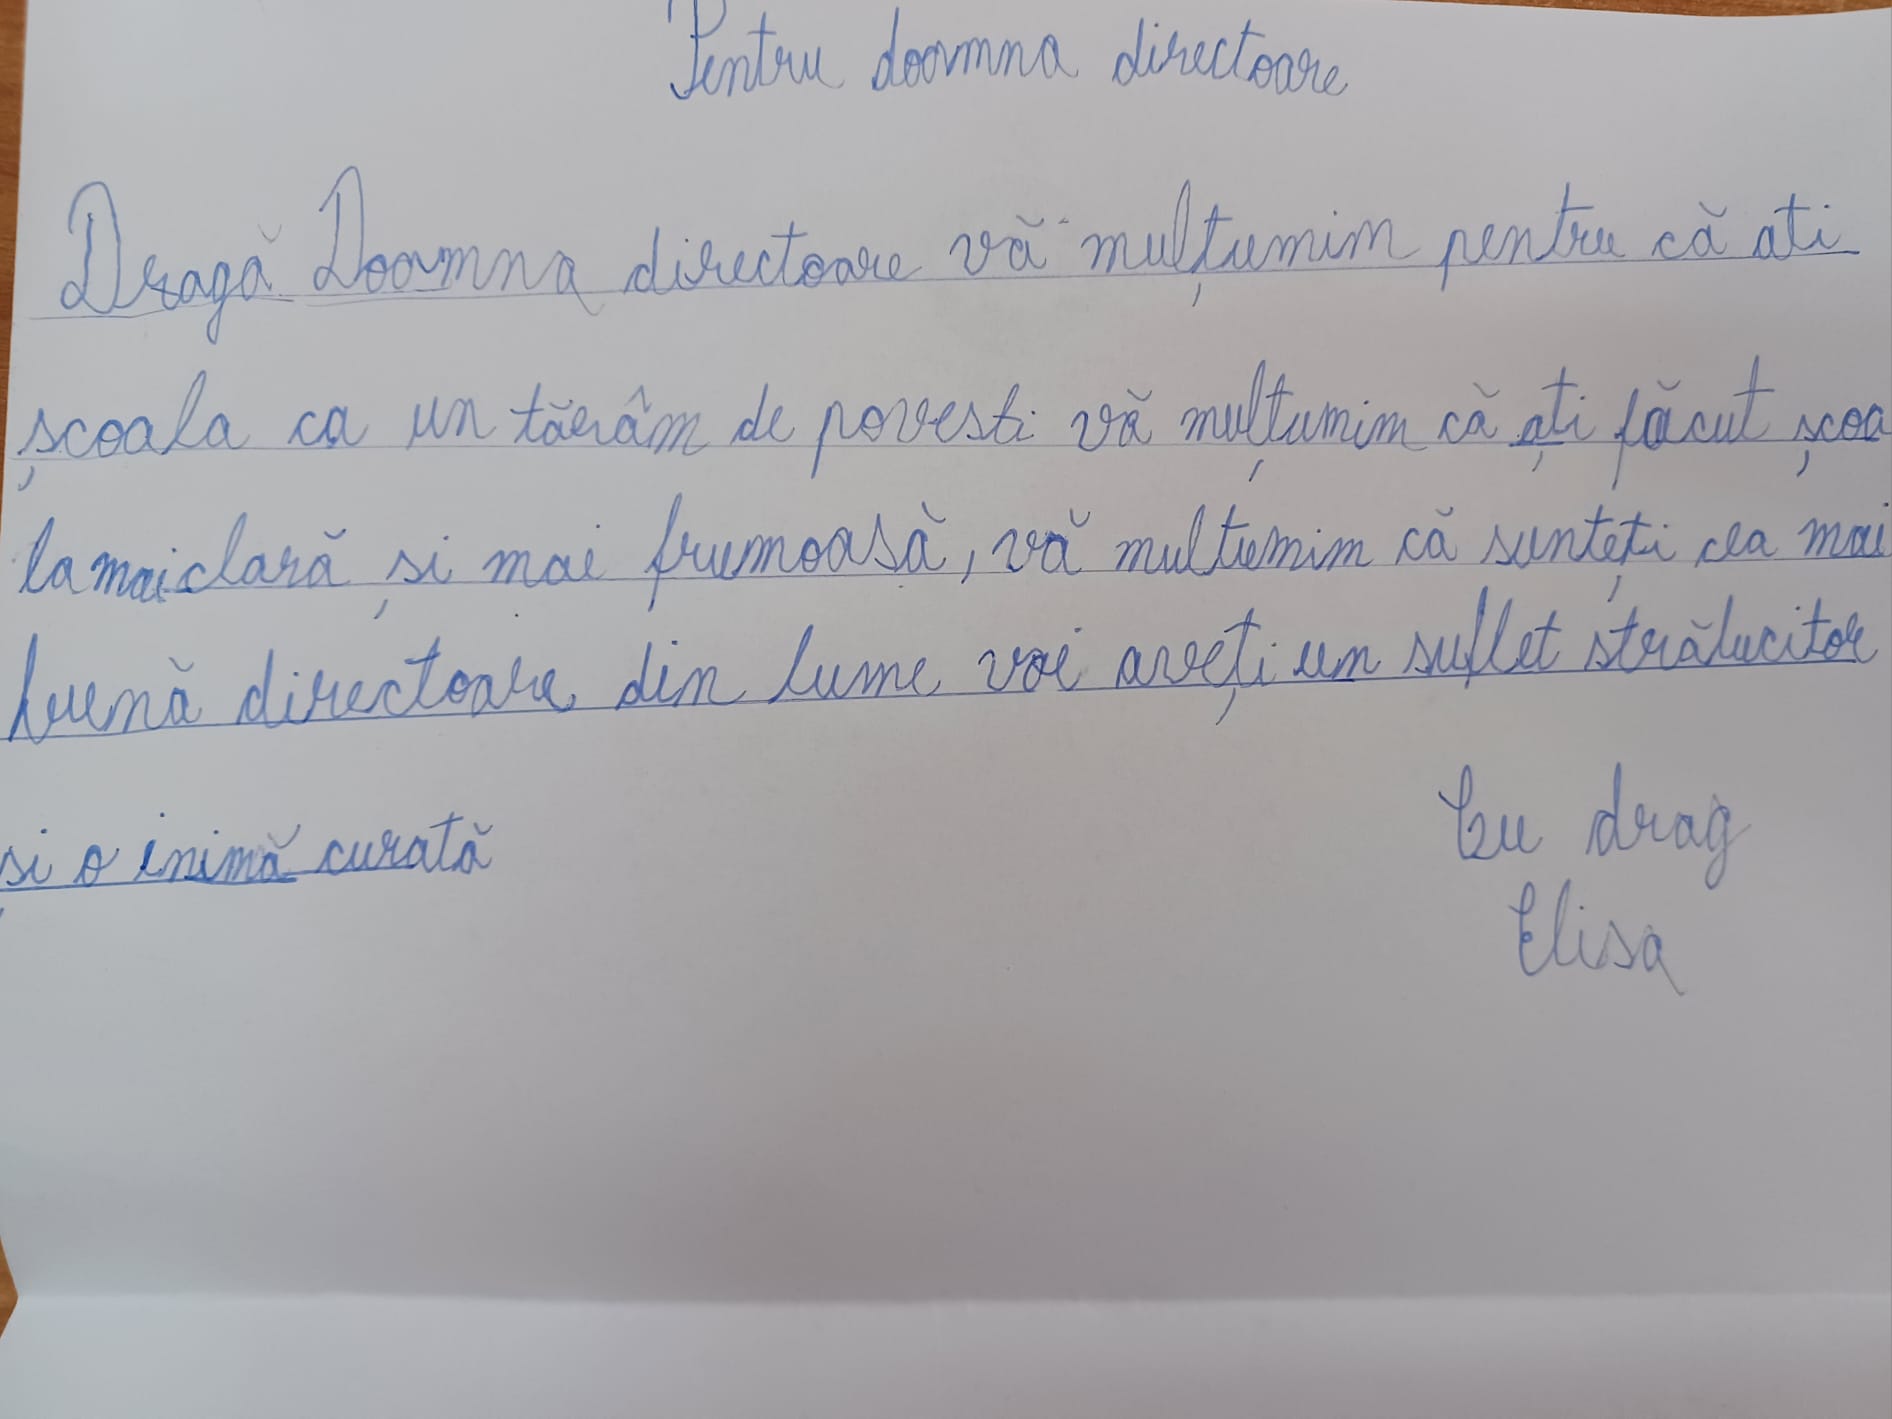 Pentru doamna directoare
Dragă Doamna directoare vă mulțumim pentru că ati
școala ca un tărâm de povesti vă mulțumim că ați făcut școa
la mai clară și mai frumoasă, vă multumim că sunteți cea mai
bună directoare din lume voi aveți un suflet strălucitor
și o inimă curată
Cu drag
Elisa